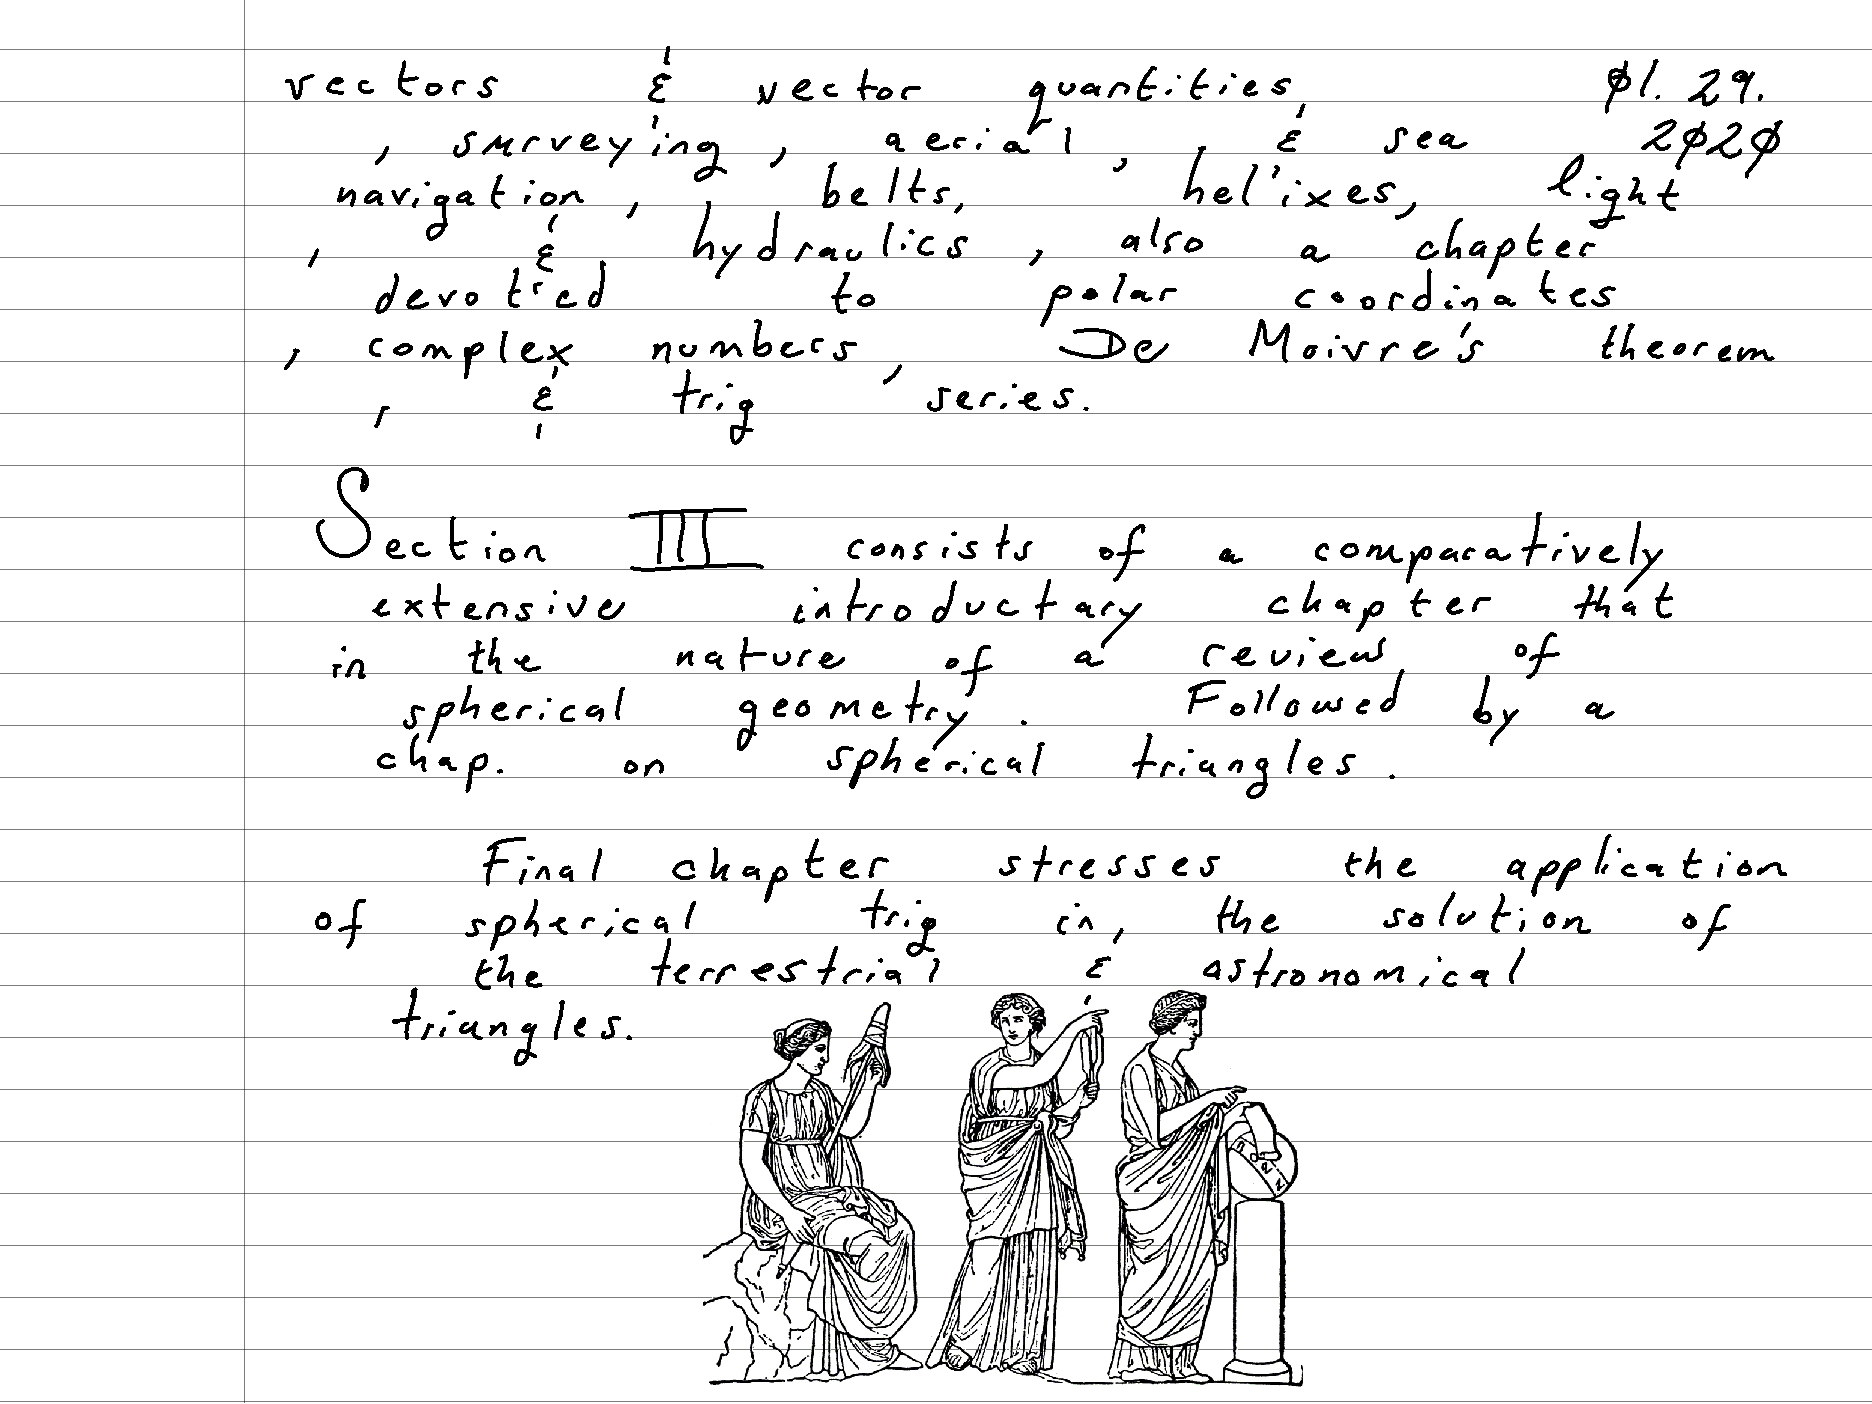 vectors & vector quantities, 01. 29.
, surveying, aerial, & sea 2020
navigation, belts, hel'ixes, light
, & hydraulics, also a chapter
devoted to polar coordinates
, complex numbers, De Moivre's theorem
, & trig series.
Section III consists of a comparatively
extensive introductary chapter that
in the nature of a review of
spherical geometry. Followed by a
chap. on spherical triangles.
Final chapter stresses the application
of spherical trig in, the solution of
the terrestrial & astronomical
triangles.